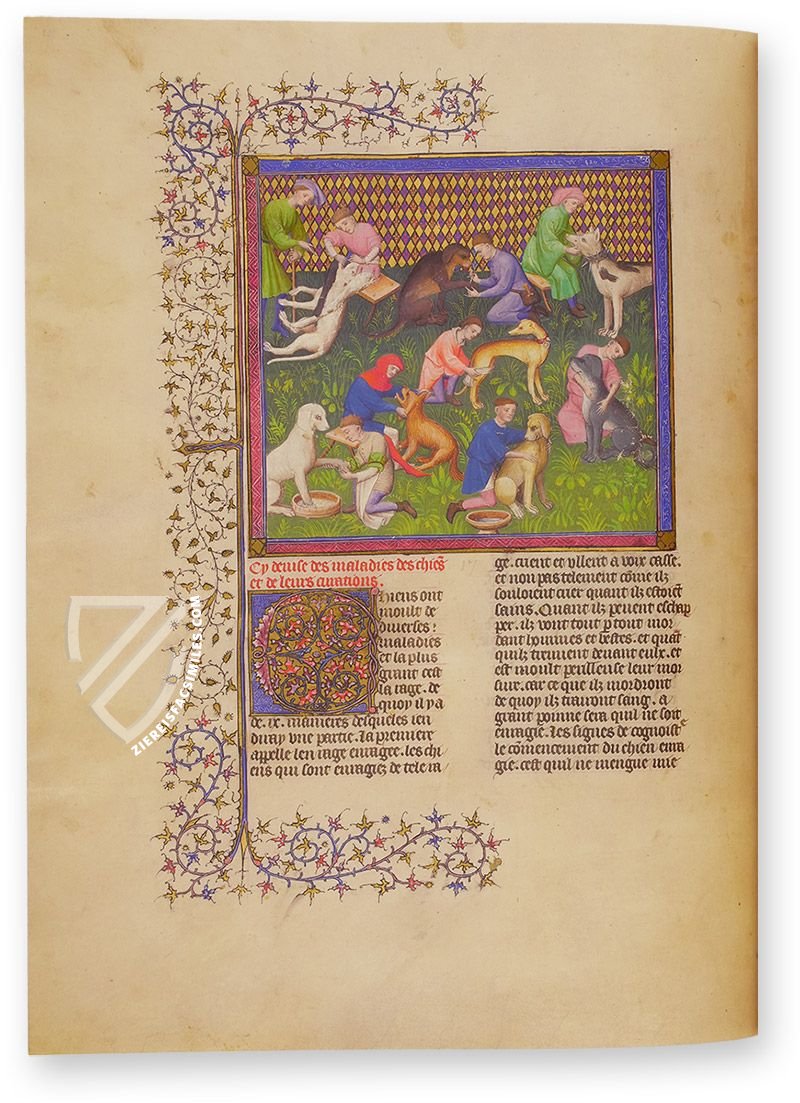 Cy deuise des maladies des chiẽs
et de leurs curations.
Chiens ont
moult de
diuerses
maladies
et la plus
grant cest
la rage. de
quoy il y a
de .ix. manieres desqueles ien
diray vne partie. La premiere
appelle len rage enragee. les chi
ens qui sont enragiez de tele ra
ge. crient et vllent a voix casse.
et non pas telement cõme ilz
souloient crier quant ilz estoiẽt
sains. Quant ilz peuent eschap
per. ilz vont tout par tout mor
dant hommes et bestes. et quãt
quilz treuuent deuant eulx. et
est moult perilleuse leur mor
sure. car ce que ilz mordront
de quoy ilz trairont sang. a
grant poinne sera quil ne soit
enragie. Les signes de cognoist
le cõmencement du chien enra
gie. cest quil ne mengue mie
ZIEREISFACSIMILES.COM